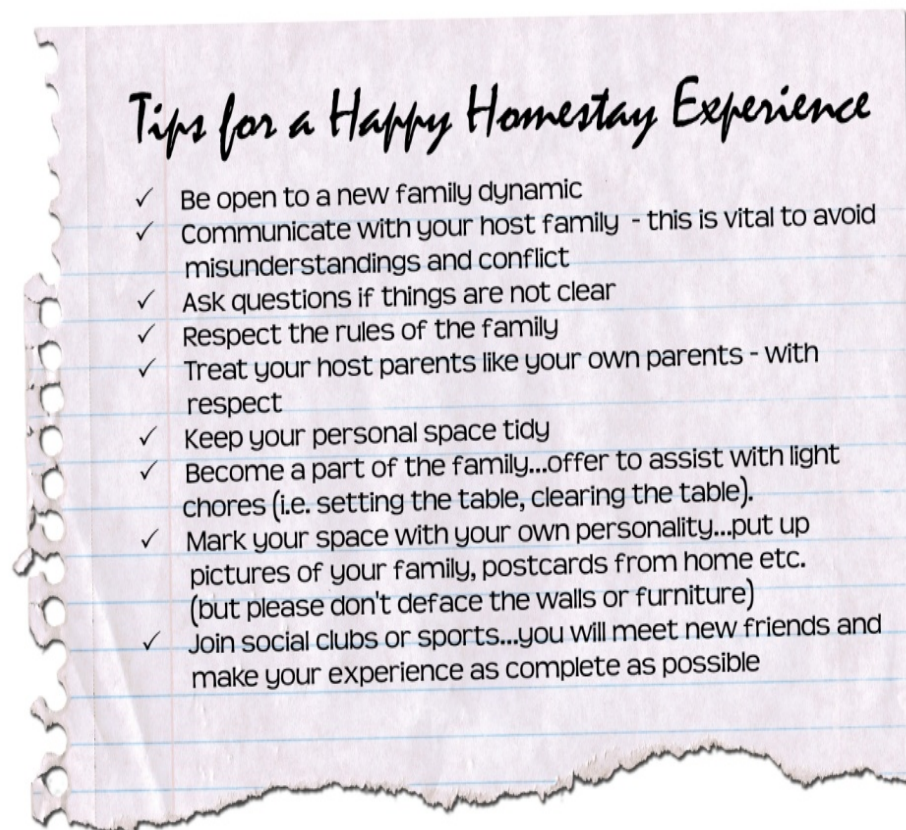 Tips for a Happy Homestay Experience
✓ Be open to a new family dynamic
✓ Communicate with your host family - this is vital to avoid
misunderstandings and conflict
✓ Ask questions if things are not clear
✓ Respect the rules of the family
✓ Treat your host parents like your own parents - with
respect
✓ Keep your personal space tidy
✓ Become a part of the family...offer to assist with light
chores (i.e. setting the table, clearing the table).
✓ Mark your space with your own personality...put up
pictures of your family, postcards from home etc.
(but please don't deface the walls or furniture)
✓ Join social clubs or sports...you will meet new friends and
make your experience as complete as possible